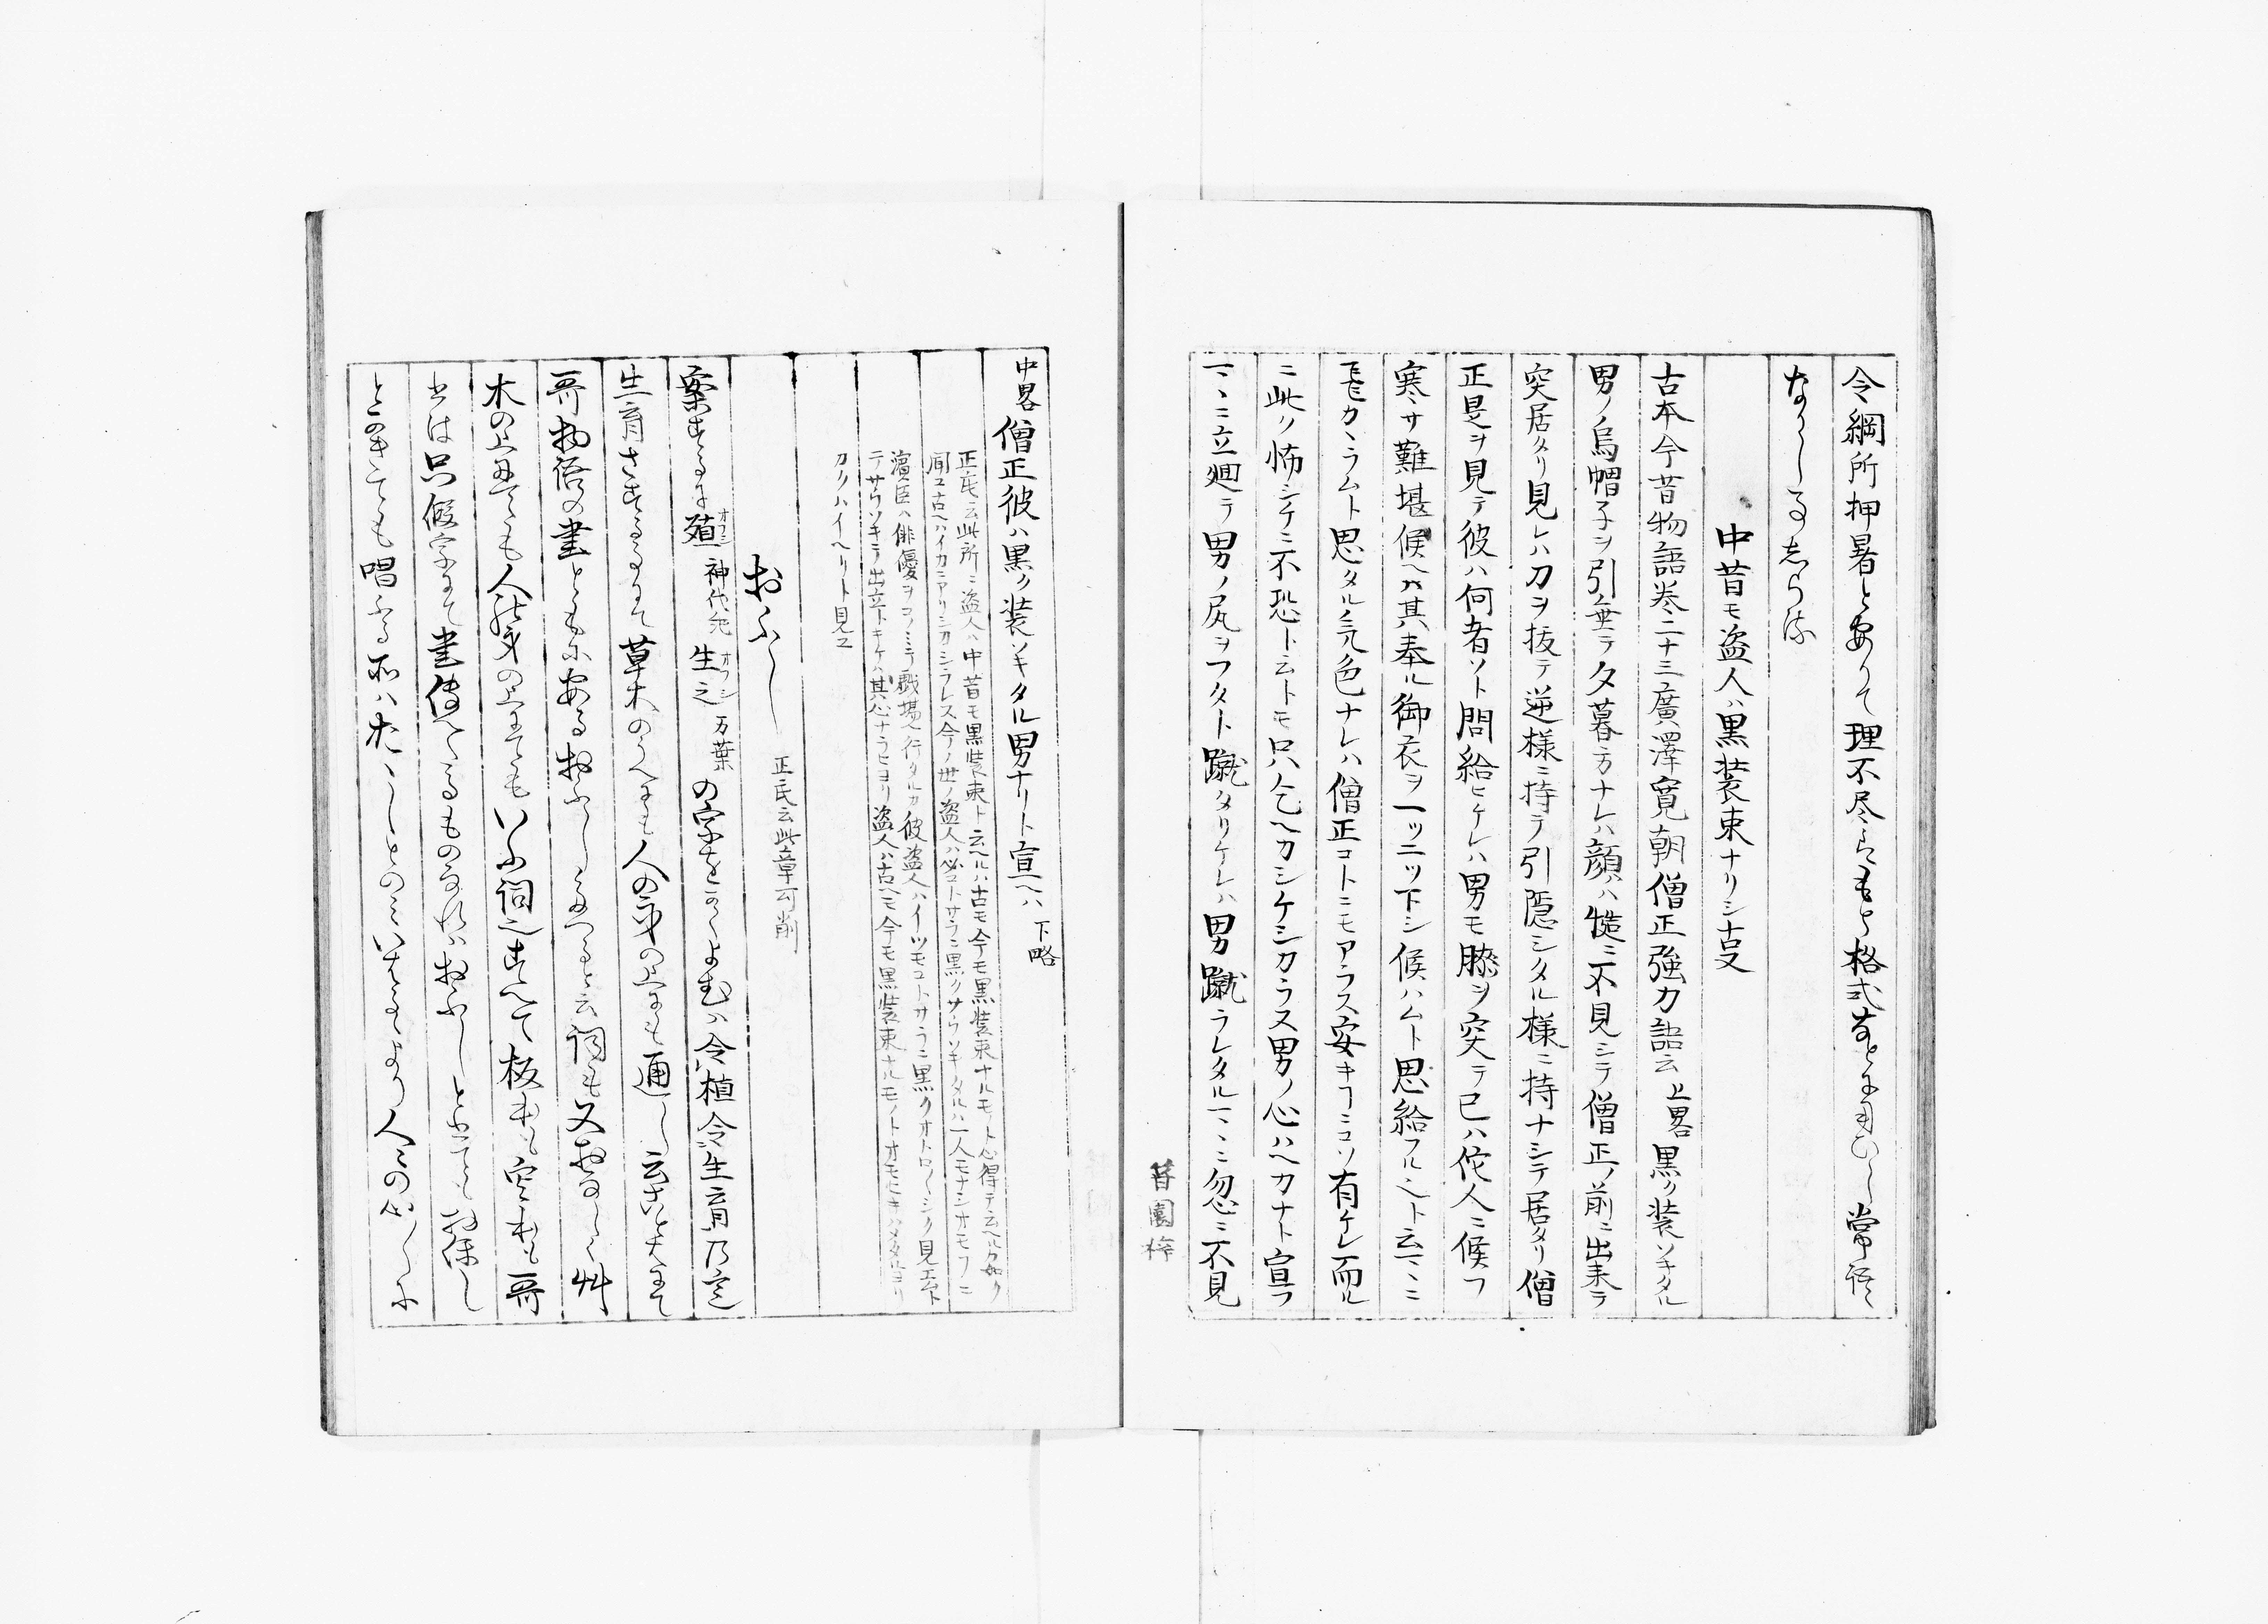 令綱所押署と有りて理不尽も格式なとに用ひし常語
なりし事しらる
中昔モ盗人ハ黒装束ナリシ古叓
古本今昔物語巻二十三廣澤寛朝僧正強力語云 上畧 黒ク装ソキタル
男ノ烏帽子ヲ引垂テ夕暮方ナレハ顔ハ慥ニ不見シテ僧正ノ前ニ出来テ
突居タリ見レハ刀ヲ抜テ逆様ニ持テ引隠シタル様ニ持ナシテ居タリ僧
正是ヲ見テ彼ハ何者ソト問給ヒケレハ男モ膝ヲ突テ已ハ侘人ニ候フ
寒サ難堪候ヘハ其奉ル御衣ヲ一ツ二ツ下シ候ハムト思給フル也ト云マヽニ
飛カヽラムト思タル氣色ナレハ僧正コトニモアラス安キヿニコソ有ケレ而ル
ニ此ク怖シケニ不恐ト云トモ只乞ヘカシケシカラヌ男ノ心ハヘカナト宣フ
マヽニ立廻テ男ノ尻ヲフタト蹴タリケレハ男蹴ラレタルマヽニ忽ニ不見
中畧 僧正彼ハ黒ク装ソキタル男ナリト宣ヘハ 下略
正氏云此所ニ盗人ハ中昔モ黒装束ト云ヘルハ古モ今モ黒装束ナルモノト心得テ云ヘルカ如ク
聞ユ古ヘハイカニアリシカシラレス今ノ世ノ盗人ハ必コトサラニ黒クサウソキタルハ一人モナシオモフニ
濱臣ハ俳優ヲコノミテ戯場ヘ行タルカ彼盗人ハイツモコトサラニ黒クオトロ〱シク見エムト
テサウソキテ出立トキケハ其心ナラヒヨリ盗人ハ古ヘモ今モ黒装束ナルモノトオモヒキハメタルヨリ
カクハイヘリト見ユ
おふし 正氏云此章可削
案するに殖オフシ 神代紀 生之オフシ 万葉 の字をかくよむハ令植令生育乃意
生育さするにて草木のうへにも人の身の上にも通し云こと大にて
哥物語の書ともに有るおふしたつると云詞も又おなしく艸
木の上にても人の身の上にてもいふ詞也すへて板本も寫本も哥
書は只假字にて書傳へたるものなれハおふしとよみても濁し
ときても唱ふる所ハたゝしとのみいはるゝより人々のかくしに